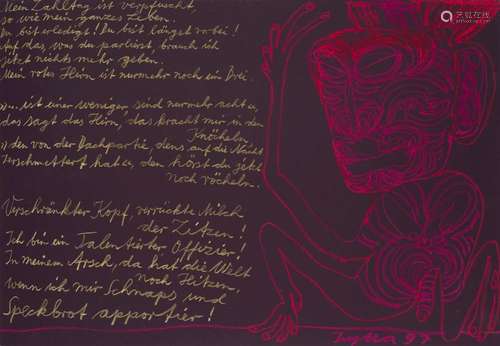 Mein Zahltag ist verpfuscht,
so wie mein ganzes Leben.
Du bist erledigt! Du bist längst vorbei!
Auf das was du parierst, brauch ich
jetzt nichts mehr geben.
Mein rotes Hirn ist nurmehr noch ein Brei.
»... ist einer weniger, sind nurmehr acht«,
das sagt das Hirn, das kracht mir in den
Knöcheln,
» den von der Dachpartie, den's auf die Nacht
zerschmettert hat«, den hörst du jetzt
noch röcheln.
Verschränkter Kopf, verrückte Milch
der Zitzen!
Ich bin ein talentierter Offizier!
In meinem Arsch, da hat die Welt
noch Hitzen,
wenn ich mir Schnaps und
Speckbrot apportier!
97